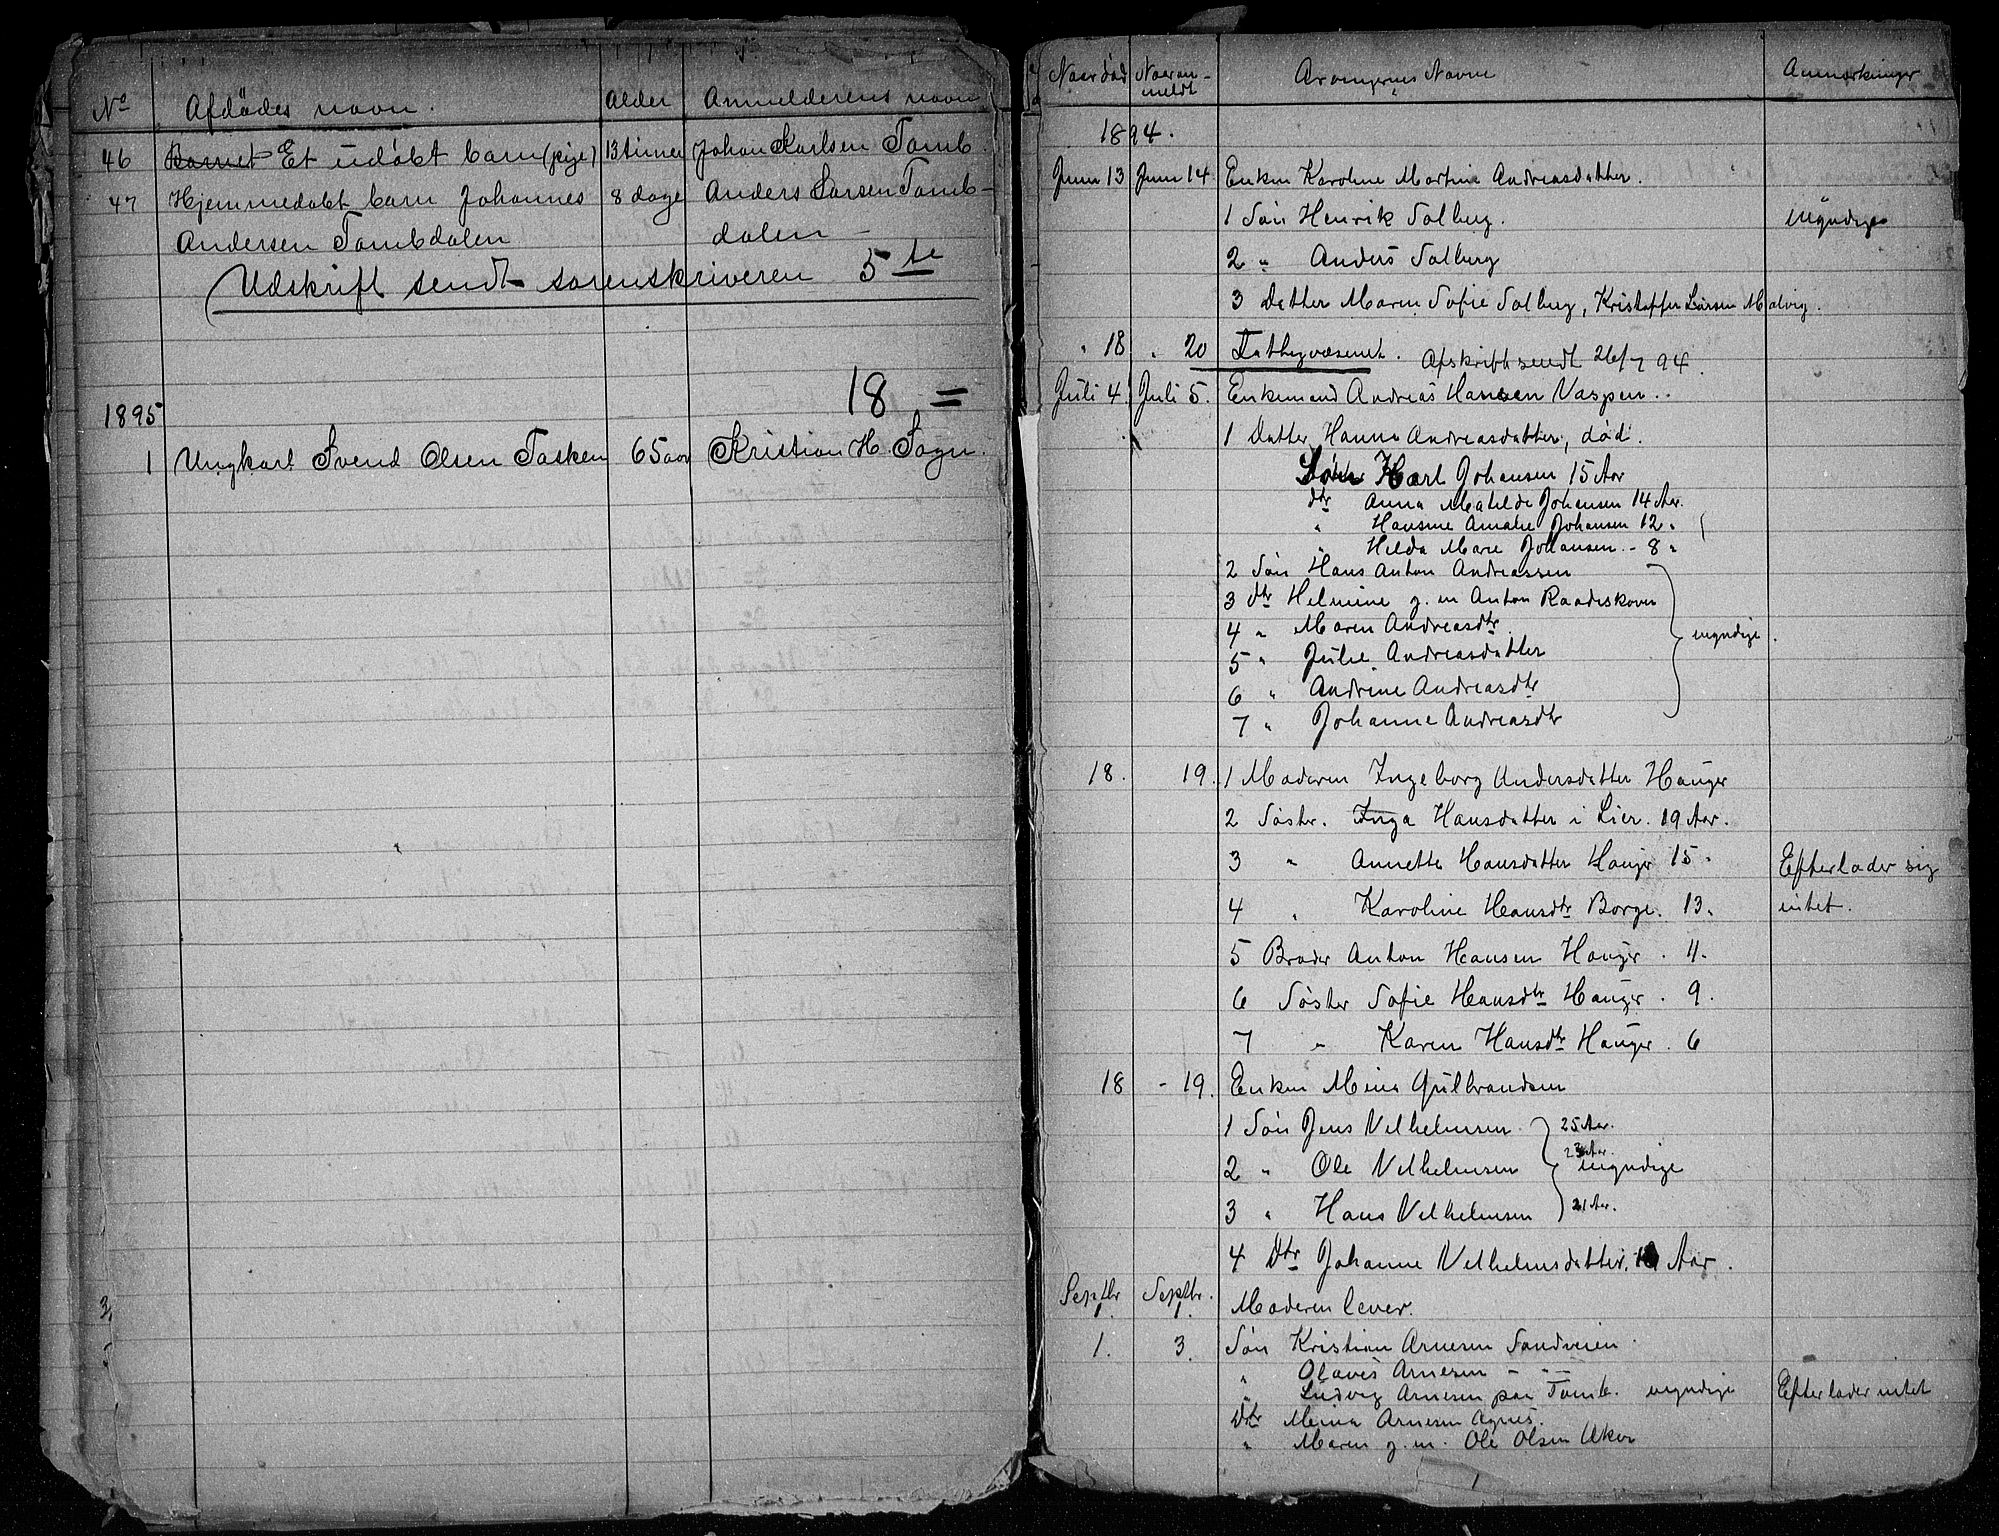 No Afdødes navn. Alder Anmelderens navn
46 Barnet Et udøbt barn (pige) 13 timer Johan Karlsen Tomb.
47 Hjemmedøbt barn Johannes 8 dage Anders Larsen Tomb-
Andersen Tombdalen dalen
Udskrift sendt sorenskriveren 5te
18 =
1895
1 Ungkarl Svend Olsen Tasken 65 aar Kristian H. Sogn.
Naar død Naar an-meldt Arvingernes Navne Anmærkninger
1894.
Juni 13 Juni 14. Enken Karoline Martine Andreasdatter.
1 Søn Henrik Solberg. myndige
2 " Anders Solberg
3 Datter Maren Sofie Solberg, Kristoffer Larsen Malvig.
" 18 " 20 Fattigvæsenet. Afskrift sendt 26/7 94.
Juli 4. Juli 5. Enkemand Andreas Hansen Vaspen.
1 Datter Hanna Andreasdatter, død.
Søn Karl Johansen 15 Aar
dtr Anna Matilde Johansen 14 Aar.
" Hansine Amalie Johansen 12 "
" Hilda Marie Johansen - 8 "
2 Søn Hans Anton Andreassen
3 dtr Helmine g. m Anton Raadeskoven
4 " Maren Andreasdtr. myndige.
5 " Julie Andreasdatter
6 " Andrine Andreasdtr
7 " Johanne Andreasdtr
18. 19. 1 Moderen Ingeborg Andersdatter Hauger
2 Søster. Inga Hansdatter i Lier. 19 Aar.
3 " Annette Hansdatter Hauger 15 " Efterlader sig
4 " Karoline Hansdtr Borge. 13 " intet.
5 Broder Anton Hansen Hauger . 11.
6 Søster Sofie Hansdtr Hauger . 9.
7 " Karen Hansdtr Hauger . 6
18 - 19. Enken Mina Gulbrandsen
1 Søn Jens Vilhelmsen 25 Aar.
23 Aar.
2 " Ole Vilhelmsen myndige
3 " Hans Vilhelmsen 21 Aar.
4 Dtr Johanne Vilhelmsdatter, Aar.
Septbr 1. Septbr. 1. Moderen lever.
1. 3. Søn Kristian Arnesen Sandveien.
" Olaves Arnesen - " -
" Ludvig Arnesen paa Tomb. myndige Efterlader intet
Dtr Mina Arnesen Agnes.
" Maren g. m. Ole Olsen Aker